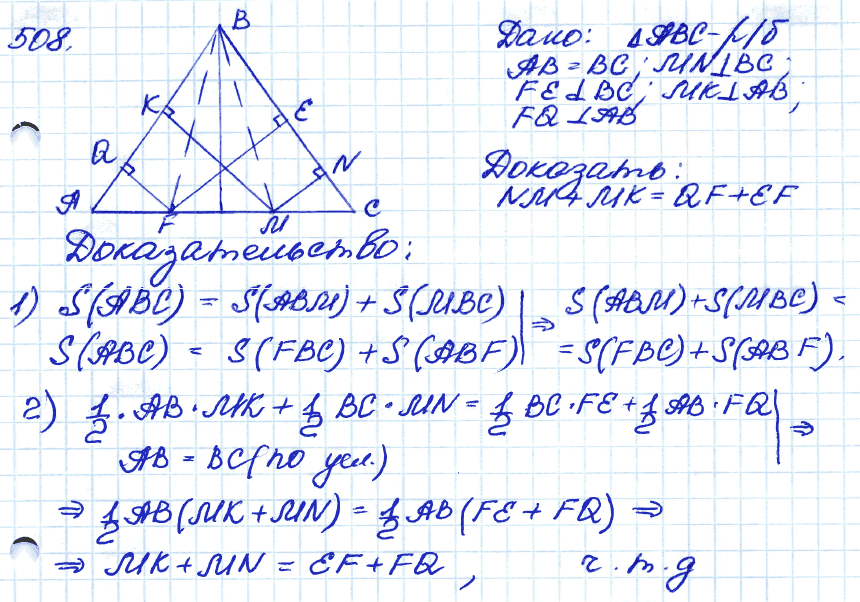 508.
B
K
E
Q
N
A
F
M
C
Дано: △ABC-р/б
AB = BC; MN⊥BC;
FE⊥BC; MK⊥AB;
FQ⊥AB
Доказать:
NM+MK = QF+EF
Доказательство:
1) S(ABC) = S(ABM) + S(MBC) | ⇒ S(ABM)+S(MBC) =
S(ABC) = S(FBC) + S(ABF) | =S(FBC)+S(ABF).
2) 1/2 · AB · MK + 1/2 BC · MN = 1/2 BC · FE + 1/2 AB · FQ | ⇒
AB = BC (по усл.)
⇒ 1/2 AB (MK + MN) = 1/2 AB (FE + FQ) ⇒
⇒ MK + MN = EF + FQ, ч.т.д